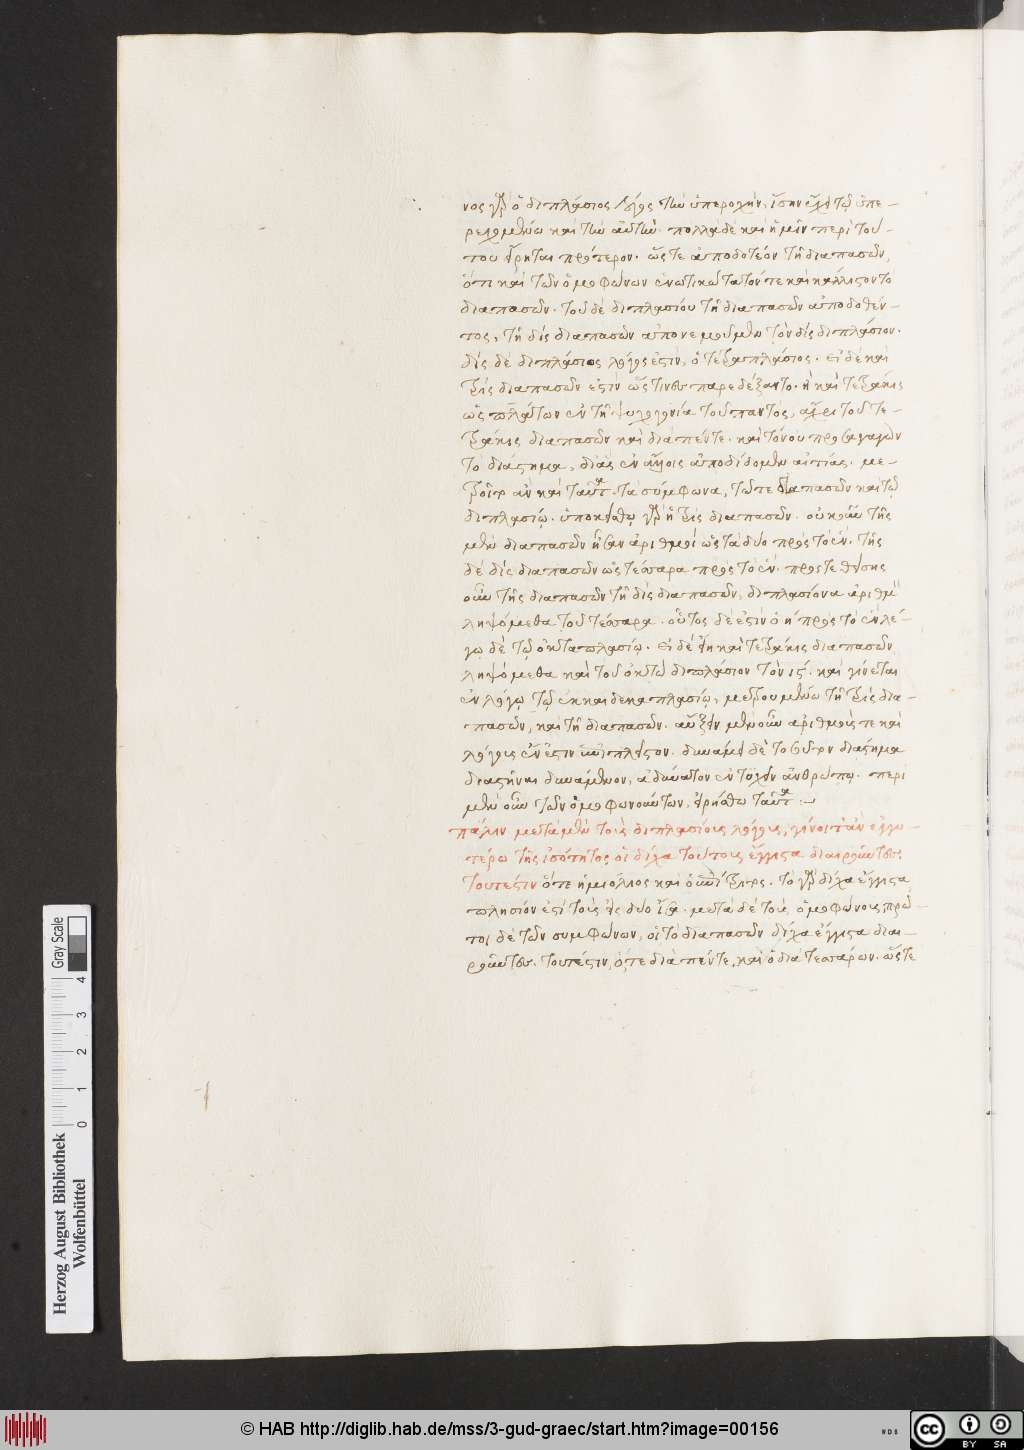 νος γὰρ ὁ διπλάσιος λόγος τὴν ὑπεροχὴν, ἴσην ἔχει τῷ ὑπε-
ρεχομένῳ καὶ τὴν αὐτήν. πολλὰ δὲ καὶ ἡμῖν περὶ τού-
του εἴρηται πρότερον. ὥστε ἀποδοτέον τῇ διαπασῶν,
ὅτι καὶ τῶν ὁμοφώνων ἑνωτικώτατόν τε καὶ κάλλιστον τὸ
διαπασῶν. τοῦ δὲ διπλασίου τῇ διαπασῶν ἀποδοθέν-
τος, τῇ δὶς διαπασῶν ἀπονεμοῦμεν τὸν δὶς διπλάσιον.
δὶς δὲ διπλάσιος λόγος ἐστὶν, ὁ τετραπλάσιος. εἰ δὲ καὶ
τρὶς διαπασῶν ἐστὶν ὥς τινες παρεδέξαντο. ἢ καὶ τετράκις
ὡς πλάτων ἐν τῇ ψυχογονία τοῦ παντὸς, ἄχρι τοῦ τε-
τράκις διαπασῶν καὶ διὰ πέντε. καὶ τόνου προαγαγὼν
τὸ διάστημα, δι' ἃς ἐν ἄλλοις ἀποδίδομεν αἰτίας. με-
τροῖτο ἂν καὶ ταῦτα τὰ σύμφωνα, τῷ τε διαπασῶν καὶ τῷ
διπλασίῳ. ὑποκείσθω γὰρ ἡ τρὶς διαπασῶν. οὐκοῦν τῆς
μὲν διαπασῶν ἦσαν ἀριθμοὶ ὡς τὰ δύο πρὸς τὸ ἕν. τῆς
δὲ δὶς διαπασῶν ὡς τέσσαρα πρὸς τὸ ἕν. προστεθείσης
οὖν τῆς διαπασῶν τῇ δὶς διαπασῶν, διπλασίονα ἀριθμὸν
ληψόμεθα τοῦ τέσσαρα. οὗτος δέ ἐστιν ὁ η΄ πρὸς τὸ ἓν λέ-
γω δὲ τῷ ὀκταπλασίῳ. εἰ δὲ εἴη καὶ τετράκις διαπασῶν
ληψόμεθα καὶ τοῦ ὀκτὼ διπλάσιον τὸν ις΄. καὶ γίνεται
ἐν λόγῳ τῷ ἑκκαιδεκαπλασίῳ, μετρουμένῳ τῇ τρὶς δια-
πασῶν, καὶ τῇ διαπασῶν. αὔξειν μὲν οὖν ἀριθμούς τε καὶ
λόγους ἔνεστιν ἐπιπλεῖστον. δυνάμει δὲ τοσοῦτον διάστημα
διαστῆναι δυνάμενον, ἀδύνατον ἐντυχεῖν ἀνθρώπῳ. περὶ
μὲν οὖν τῶν ὁμοφωνούντων, εἰρήσθω ταῦτα :-
πάλιν μετὰ μὲν τοὺς διπλασίους λόγους, γίνοιτ' ἂν ἐγγυ-
τέρω τῆς ἰσότητος οἱ δίχα τούτους ἔγγιστα διαιροῦντες.
τουτέστιν ὅ τε ἡμιόλιος καὶ ὁ ἐπίτριτος. τὸ γὰρ δίχα ἔγγιστα
πλησίον ἐστὶ τοῦ εἰς δύο ἴσα. μετὰ δὲ τοὺς ὁμοφώνους πρῶ-
τοι δὲ τῶν συμφώνων, οἱ τὸ διαπασῶν δίχα ἔγγιστα διαι-
ροῦντες. τουτέστιν, ὅ τε διὰ πέντε, καὶ ὁ διὰ τεσσάρων. ὥστε
Herzog August Bibliothek
Wolfenbüttel
0 1 2 3 4
Gray Scale
© HAB http://diglib.hab.de/mss/3-gud-graec/start.htm?image=00156
WDB
cc BY SA